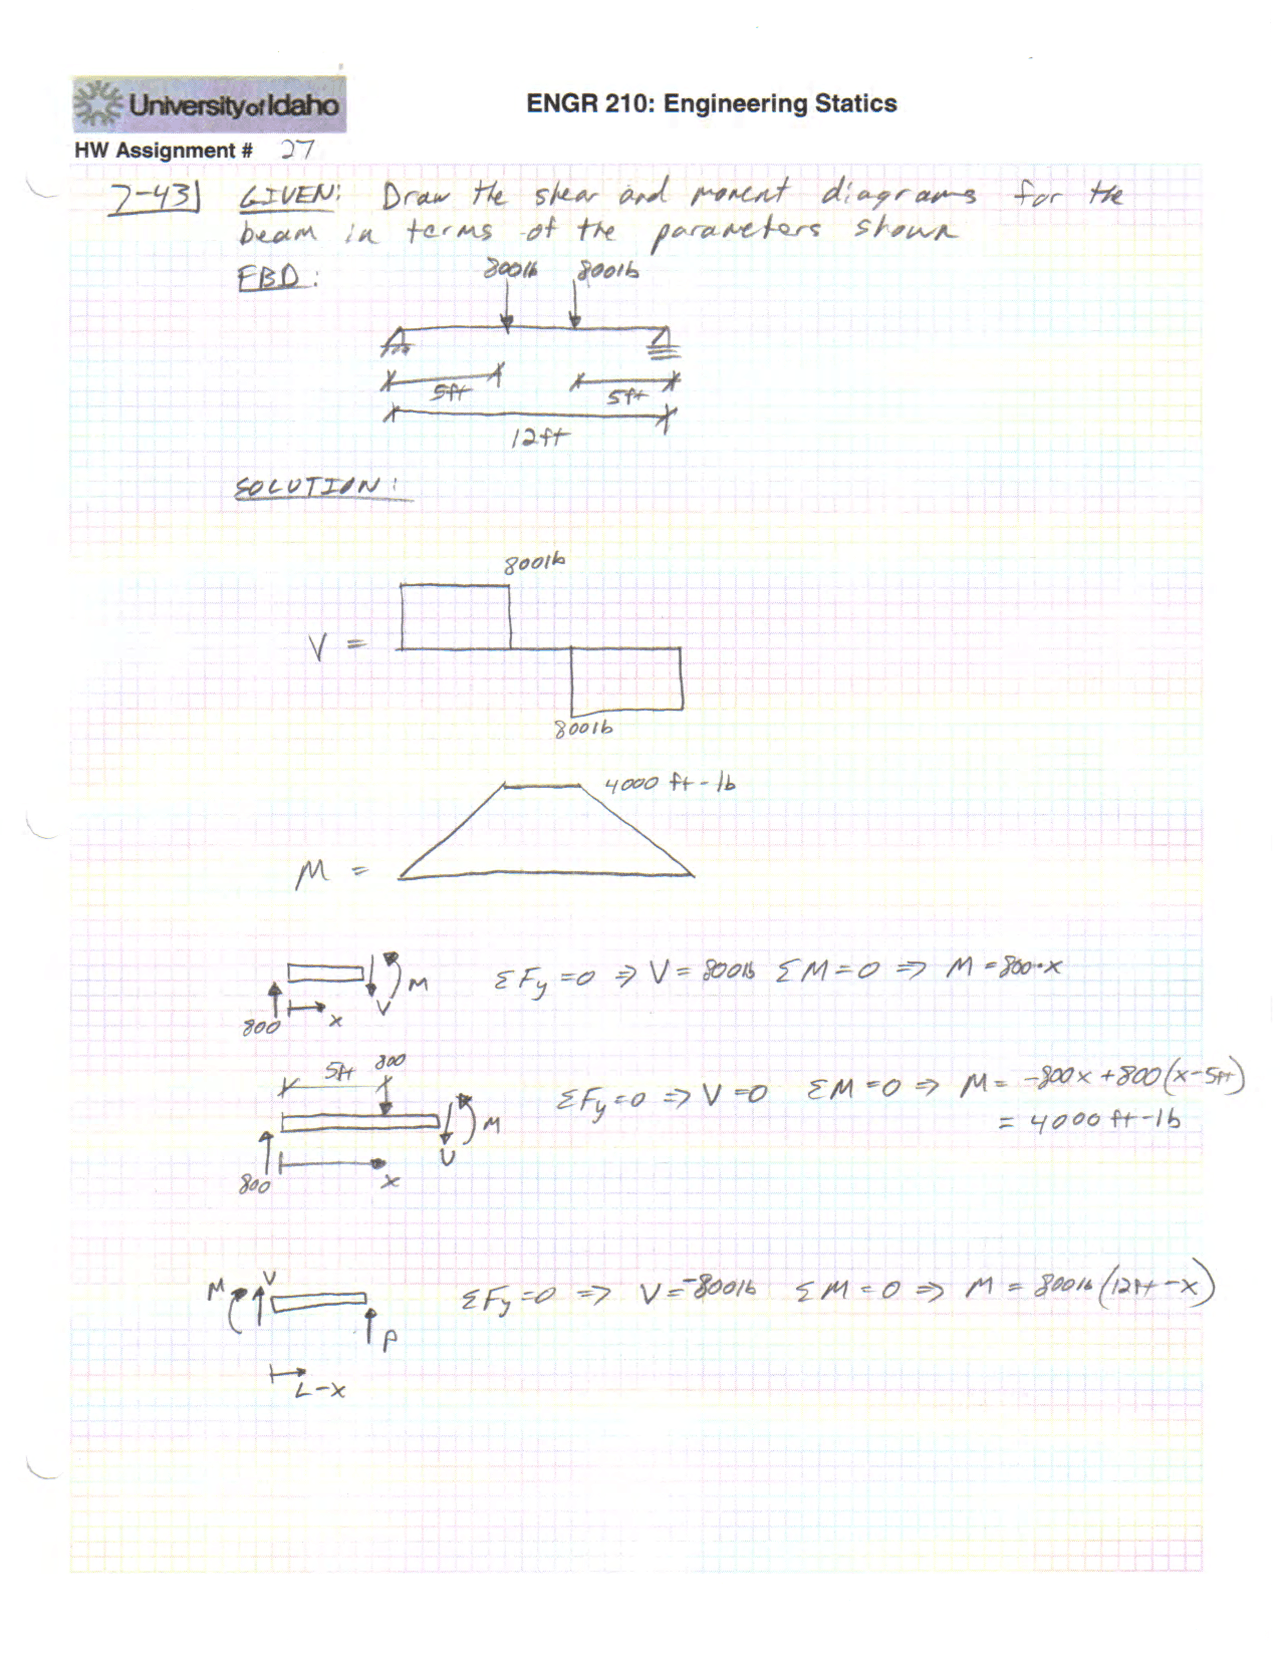 University of Idaho
ENGR 210: Engineering Statics
HW Assignment # 27
7-43| GIVEN: Draw the shear and moment diagrams for the
beam in terms of the parameters shown
FBD:
800lb 800lb
5ft 5ft
12ft
SOLUTION:
800lb
V =
800lb
4000 ft-lb
M =
M
V
x
800
ΣFy=0 => V = 800lb ΣM=0 => M=800·x
5ft 800
ΣFy=0 => V=0 ΣM=0 => M= -800x+800(x-5ft)
= 4000 ft-lb
M
V
800
x
M V
ΣFy=0 => V=-800lb ΣM=0 => M = 800lb(12ft-x)
P
L-x